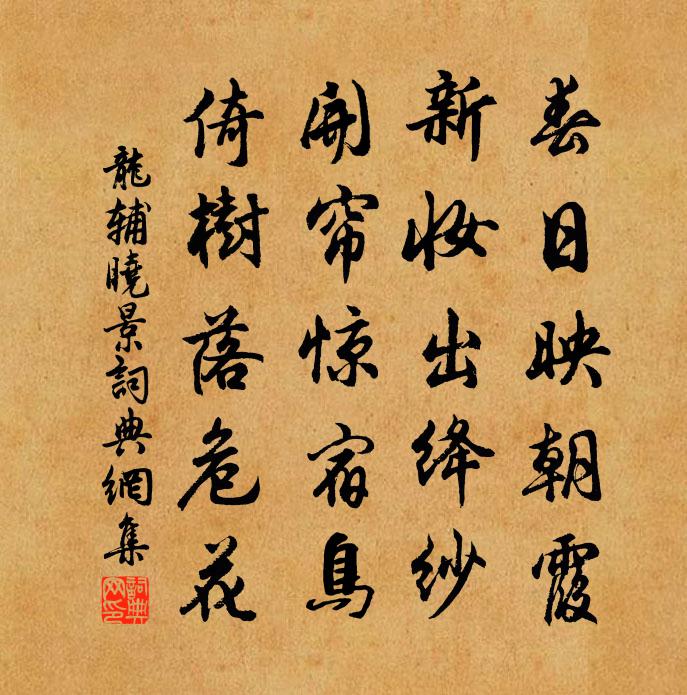 春日映朝霞
新妆出绛纱
開帘惊宿鳥
倚樹落危花
龍辅曉景詞典網集
詞典
网印